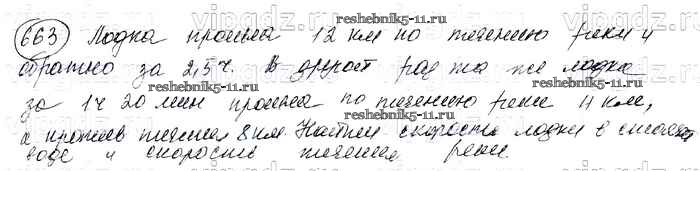 663 Лодка прошла 12 км по течению реки и
обратно за 2,5 ч. В другой раз та же лодка
за 1 ч 20 мин прошла по течению реки 4 км,
а против течения 8 км. Найти скорость лодки в стоячей
воде и скорость течения реки.
reshebnik5-11.ru
reshebnik5-11.ru
reshebnik5-11.ru
reshebnik5-11.ru
vipgdz.ru